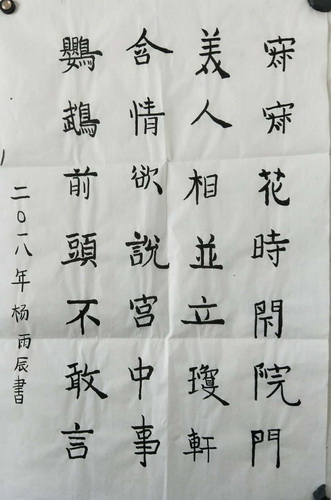 寂寂花時閉院門
美人相並立瓊軒
含情欲說宮中事
鸚鵡前頭不敢言
二〇一八年杨雨辰書